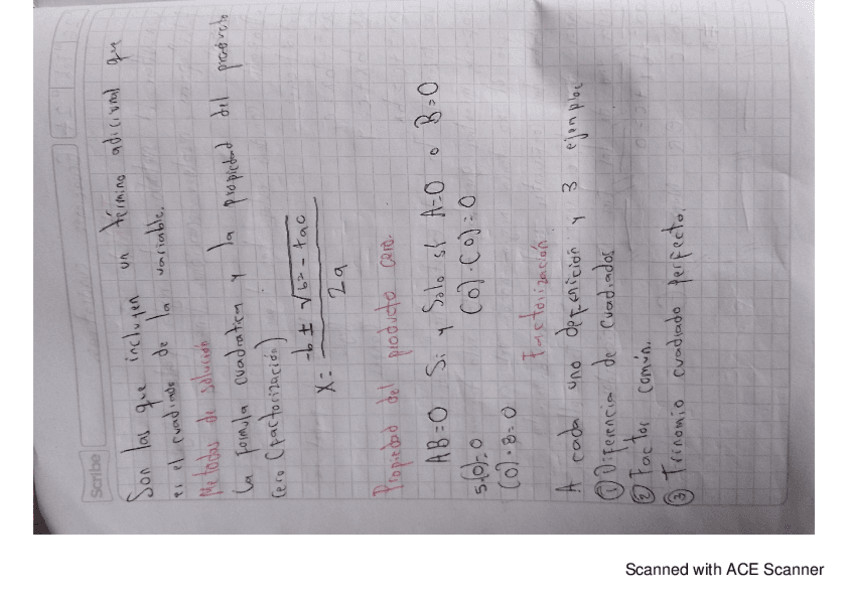 scribe
Son las que incluyen un término adicional que
es el cuadrado de la variable.
Metodos de solución
La formula cuadratica y la propiedad del producto
cero (factorización)
X = -b ± √b² - 4ac
2a
Propiedad del producto cero.
AB=0 Si y Solo si A=0 o B=0
5(0)=0 (0)·(0)=0
(0)·B=0
Factorización
A cada uno definición y 3 ejemplos
① Diferencia de cuadrados
② Factor común.
③ Trinomio cuadrado perfecto.
Scanned with ACE Scanner